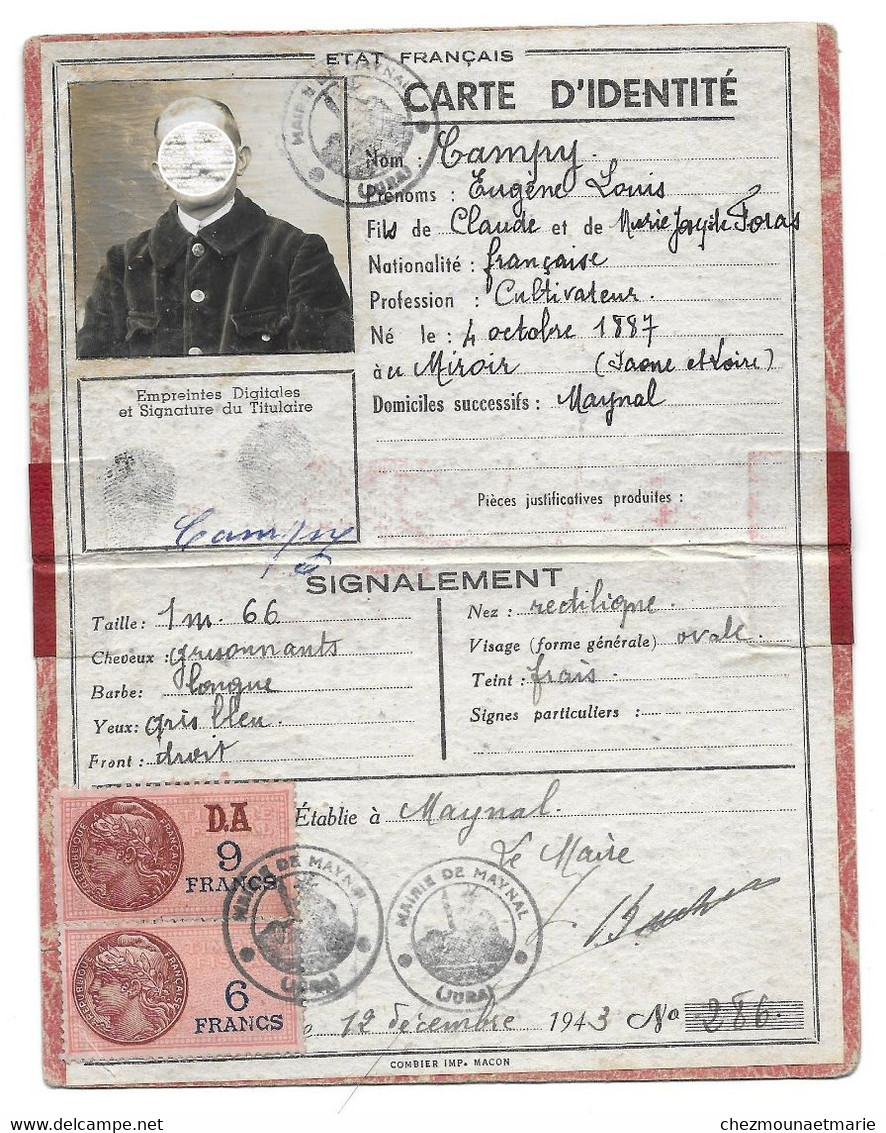 ETAT FRANÇAIS
CARTE D'IDENTITÉ
MAIRIE DE MAYNAL
(JURA)
Nom : Campy
Prénoms : Eugène Louis
Fils de Claude et de Marie Foras
Nationalité : française
Profession : Cultivateur.
Né le : 4 octobre 1887
à u Miroir (Saone et Loire)
Domiciles successifs : Maynal
Pièces justificatives produites :
Empreintes Digitales
et Signature du Titulaire
Campy
SIGNALEMENT
Taille : 1m. 66
Cheveux : grisonnants
Barbe : longue
Yeux : gris bleu.
Front : droit
Nez : rectiligne
Visage (forme générale) ovale.
Teint : frais.
Signes particuliers :
Établie à Maynal.
Le Maire
D.A
9
FRANCS
MAIRIE DE MAYNAL
(JURA)
MAIRIE DE MAYNAL
(JURA)
6
FRANCS
12 décembre 1943 No 286.
COMBIER IMP. MACON
delcampe.net
chezmounaetmarie